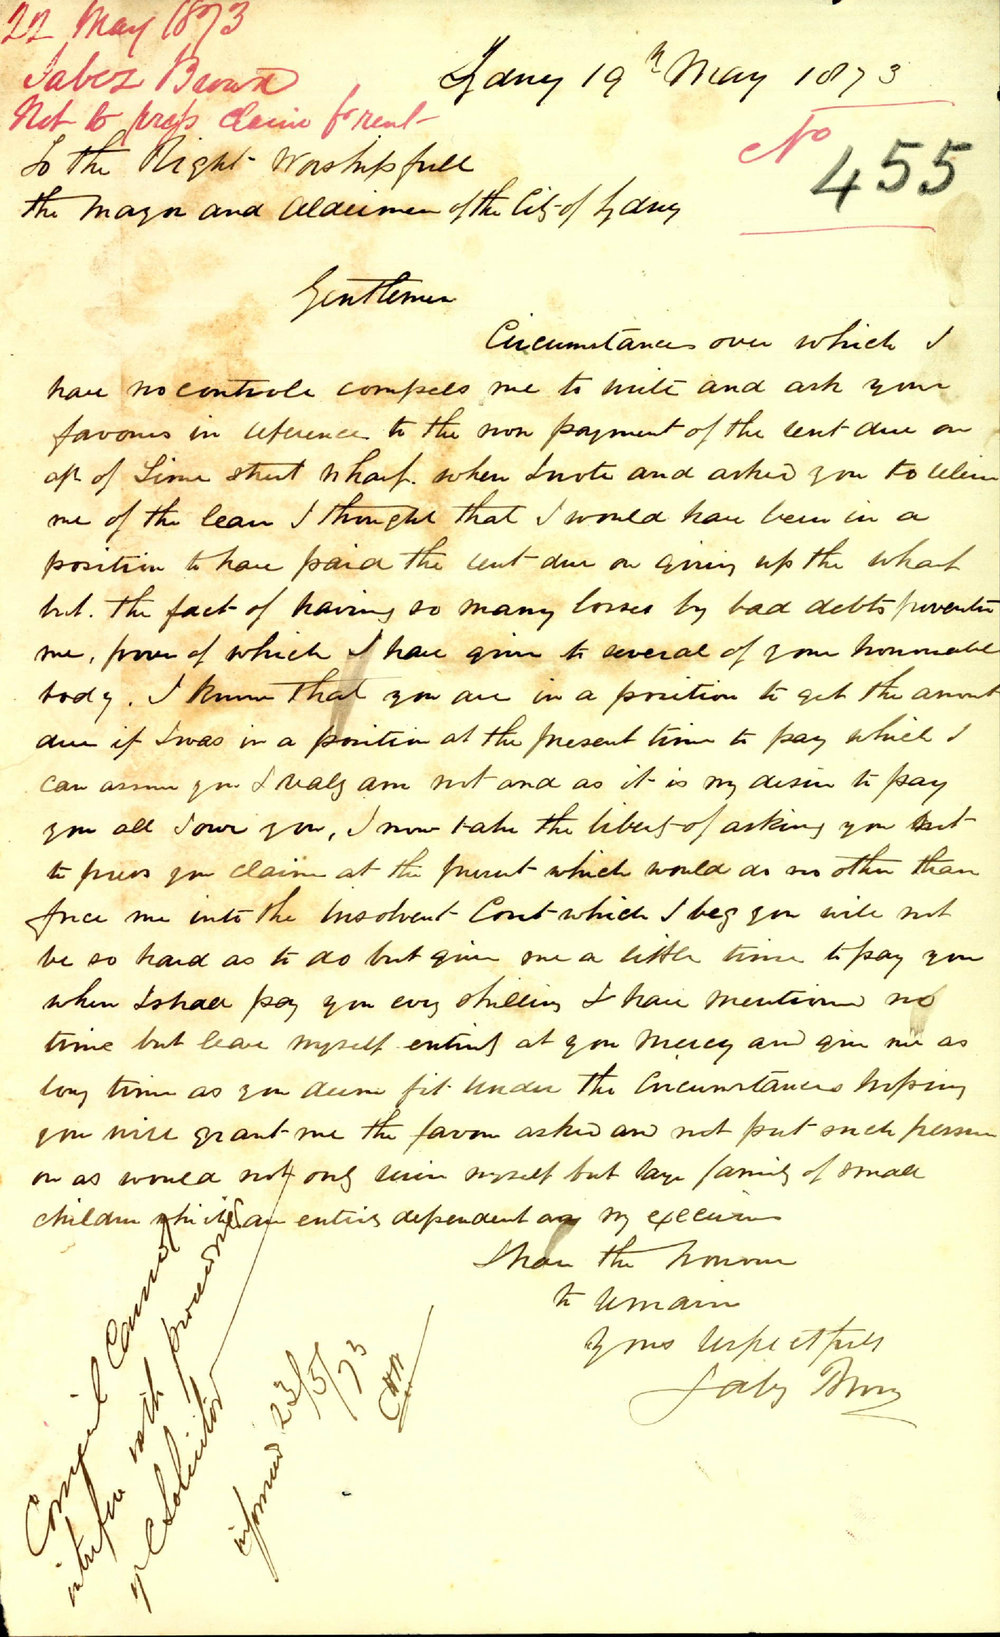 22 May 1873
Jabez Brown
Not to press claim for rent
Sydney 19th May 1873
No 455
To the Right Worshipfull
the Mayor and Aldermen of the City of Sydney
Gentlemen
Circumstances over which I
have no controle compels me to write and ask your
favours in reference to the non payment of the rent due on
a/c of Lime street wharf. when I wrote and asked you to releive
me of the lease I thought that I would have been in a
position to have paid the rent due on giving up the wharf
but. the fact of having so many losses by bad debts prevents
me, prove of which I have given to several of your honourable
body. I know that you are in a position to get the amount
due if I was in a position at the present time to pay which I
can assure you I realy am not and as it is my desire to pay
you all I owe you, I now take the liberty of asking you not
to press your claim at the present which would do no other than
force me into the Insolvent Court which I beg you will not
be so hard as to do but give me a little time to pay you
when I shall pay you every shilling I have mentioned no
time but leave myself entirely at your Mercy and give me as
long time as you deem fit under the Circumstances hoping
you will grant me the favour asked and not put such pressure
on as would not only ruin myself but large family of small
children which are entirely dependent on my
I have the honour
to remain
Yours respectfully
Jabez
Council cannot
interfere with proceedings
of C Solicitor
informed 23/5/73